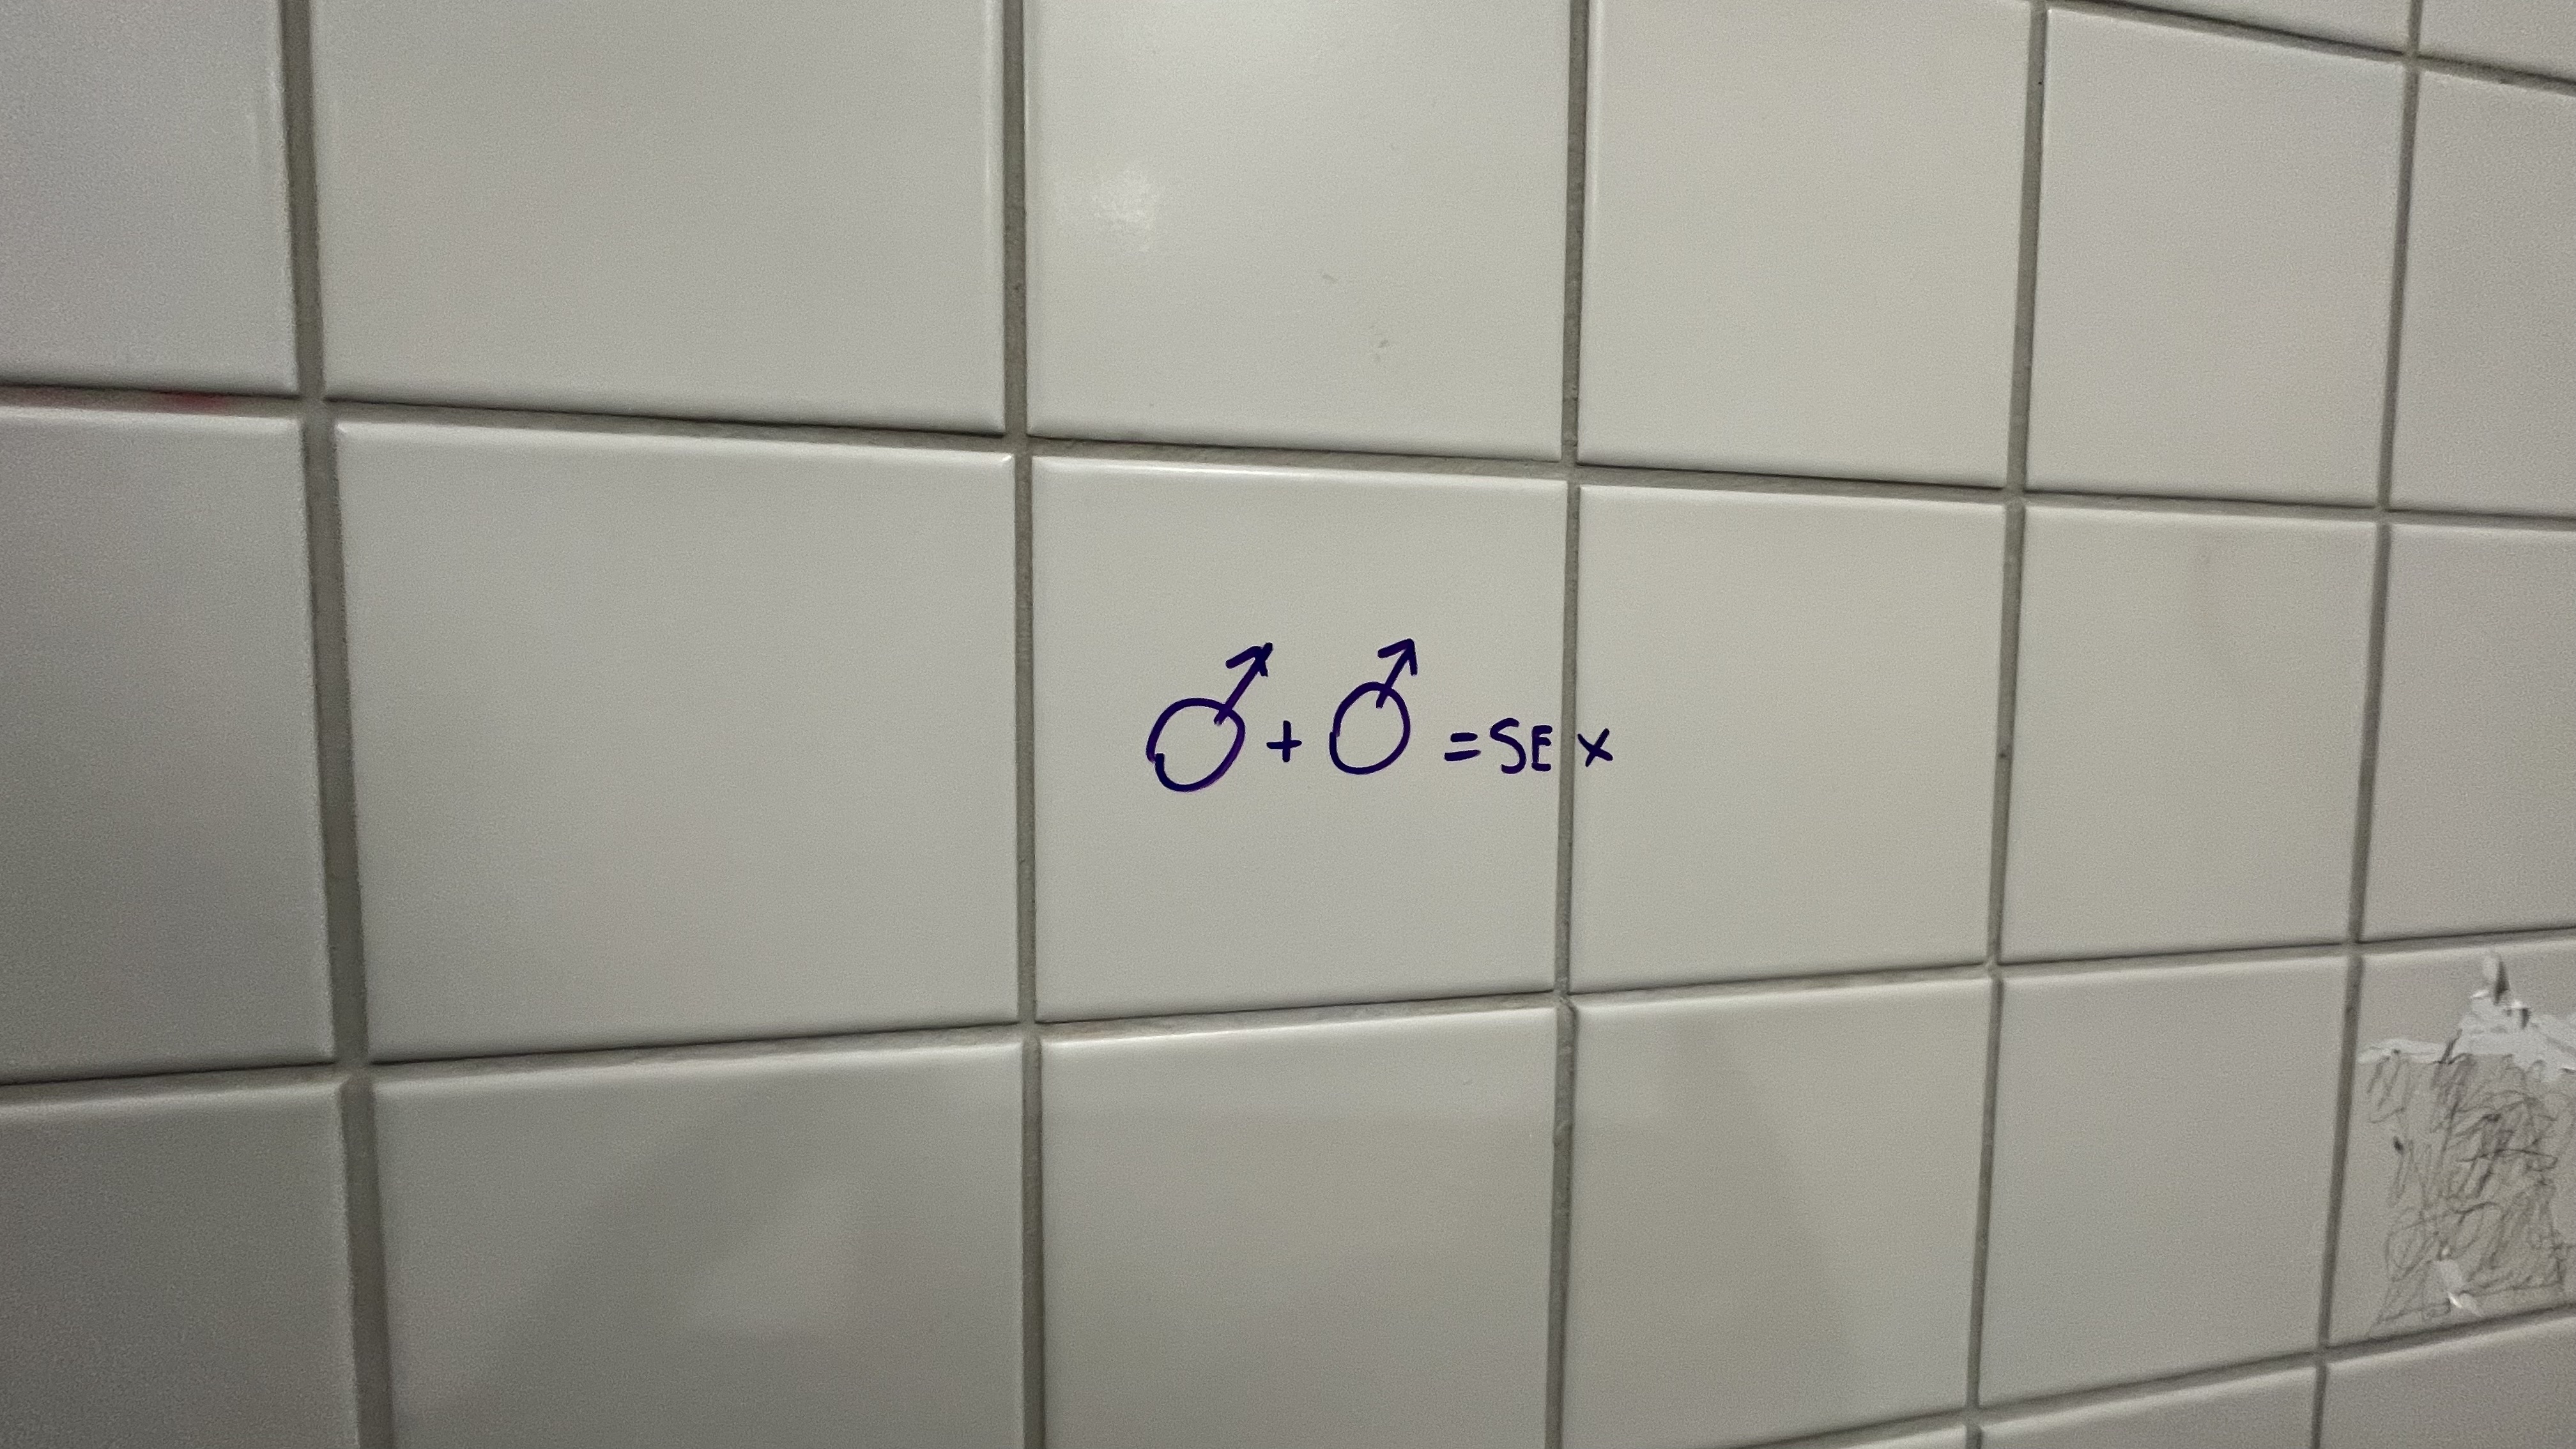 ♂+♂=SEX